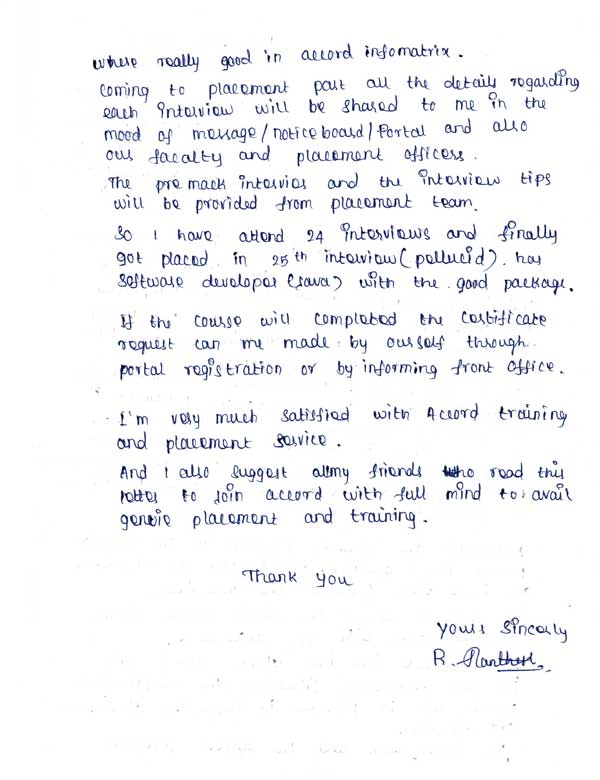 where really good in accord infomatrix.
coming to placement part all the details regarding
each interview will be shared to me in the
mood of message/noticeboard/Portal and also
our facalty and placement officers.
The pre mack intervies and the interview tips
will be provided from placement team.
So I have attend 24 interviews and finally
got placed in 25th interview (pellucid). has
Software developer (Java) with the good package.
If the course will completed the certificate
request can me made by ourself through
portal registration or by informing front office.
I'm very much satisfied with Accord training
and placement service.
And I also suggest all my friends who read this
letter to join accord with full mind to avail
placement and training.
Thank you
Yours Sincerly
R.